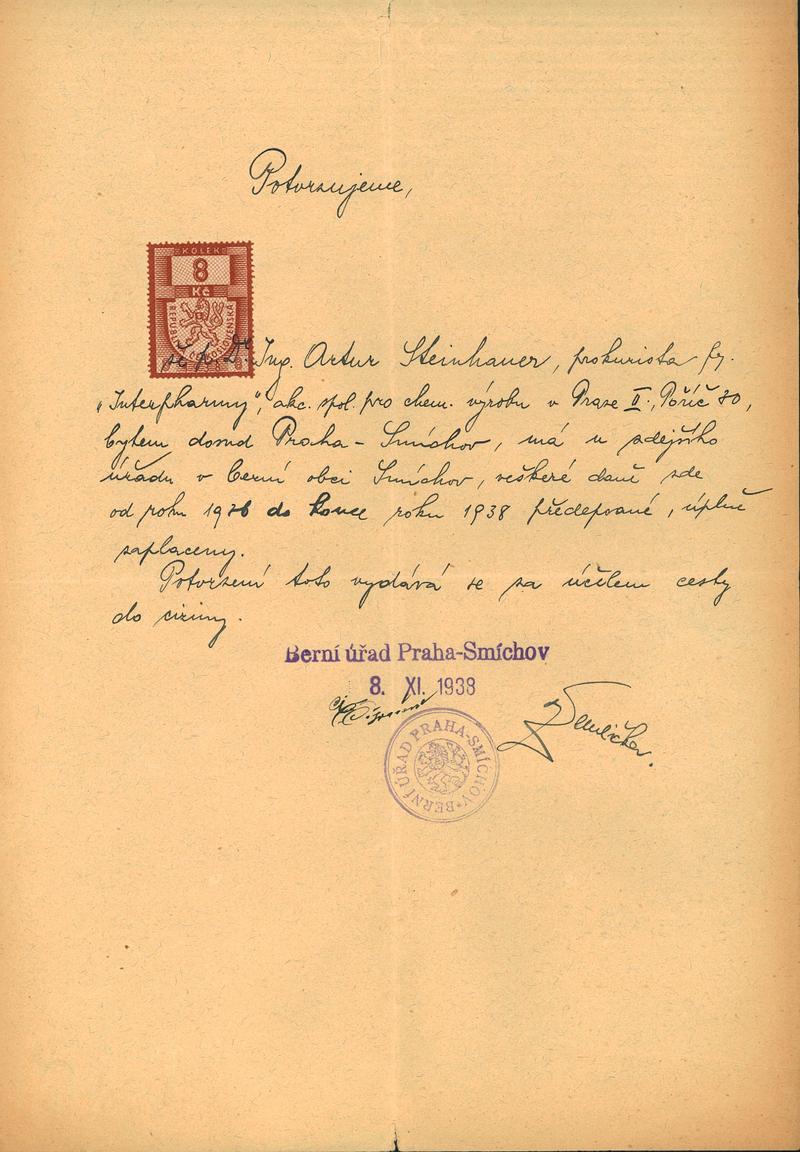 Potvrzujeme,
KOLEK
8
Kč
REPUBLIKA ČESKOSLOVENSKÁ
že p. Dr. Ing. Artur Steinhauer, prokurista fy.
"Interpharmy", akc. spol. pro chem. výrobu v Praze II., Poříč
bytem dosud Praha - Smíchov, má u zdejšího
úřadu v berní obci Smíchov, veškeré daně zde
od roku do konce roku 1938 předepsané, úplně
zaplaceny.
Potvrzení toto vydává se za účelem cesty
do ciziny.
Berní úřad Praha-Smíchov
8. XI. 1938
BERNÍ ÚŘAD PRAHA-SMÍCHOV